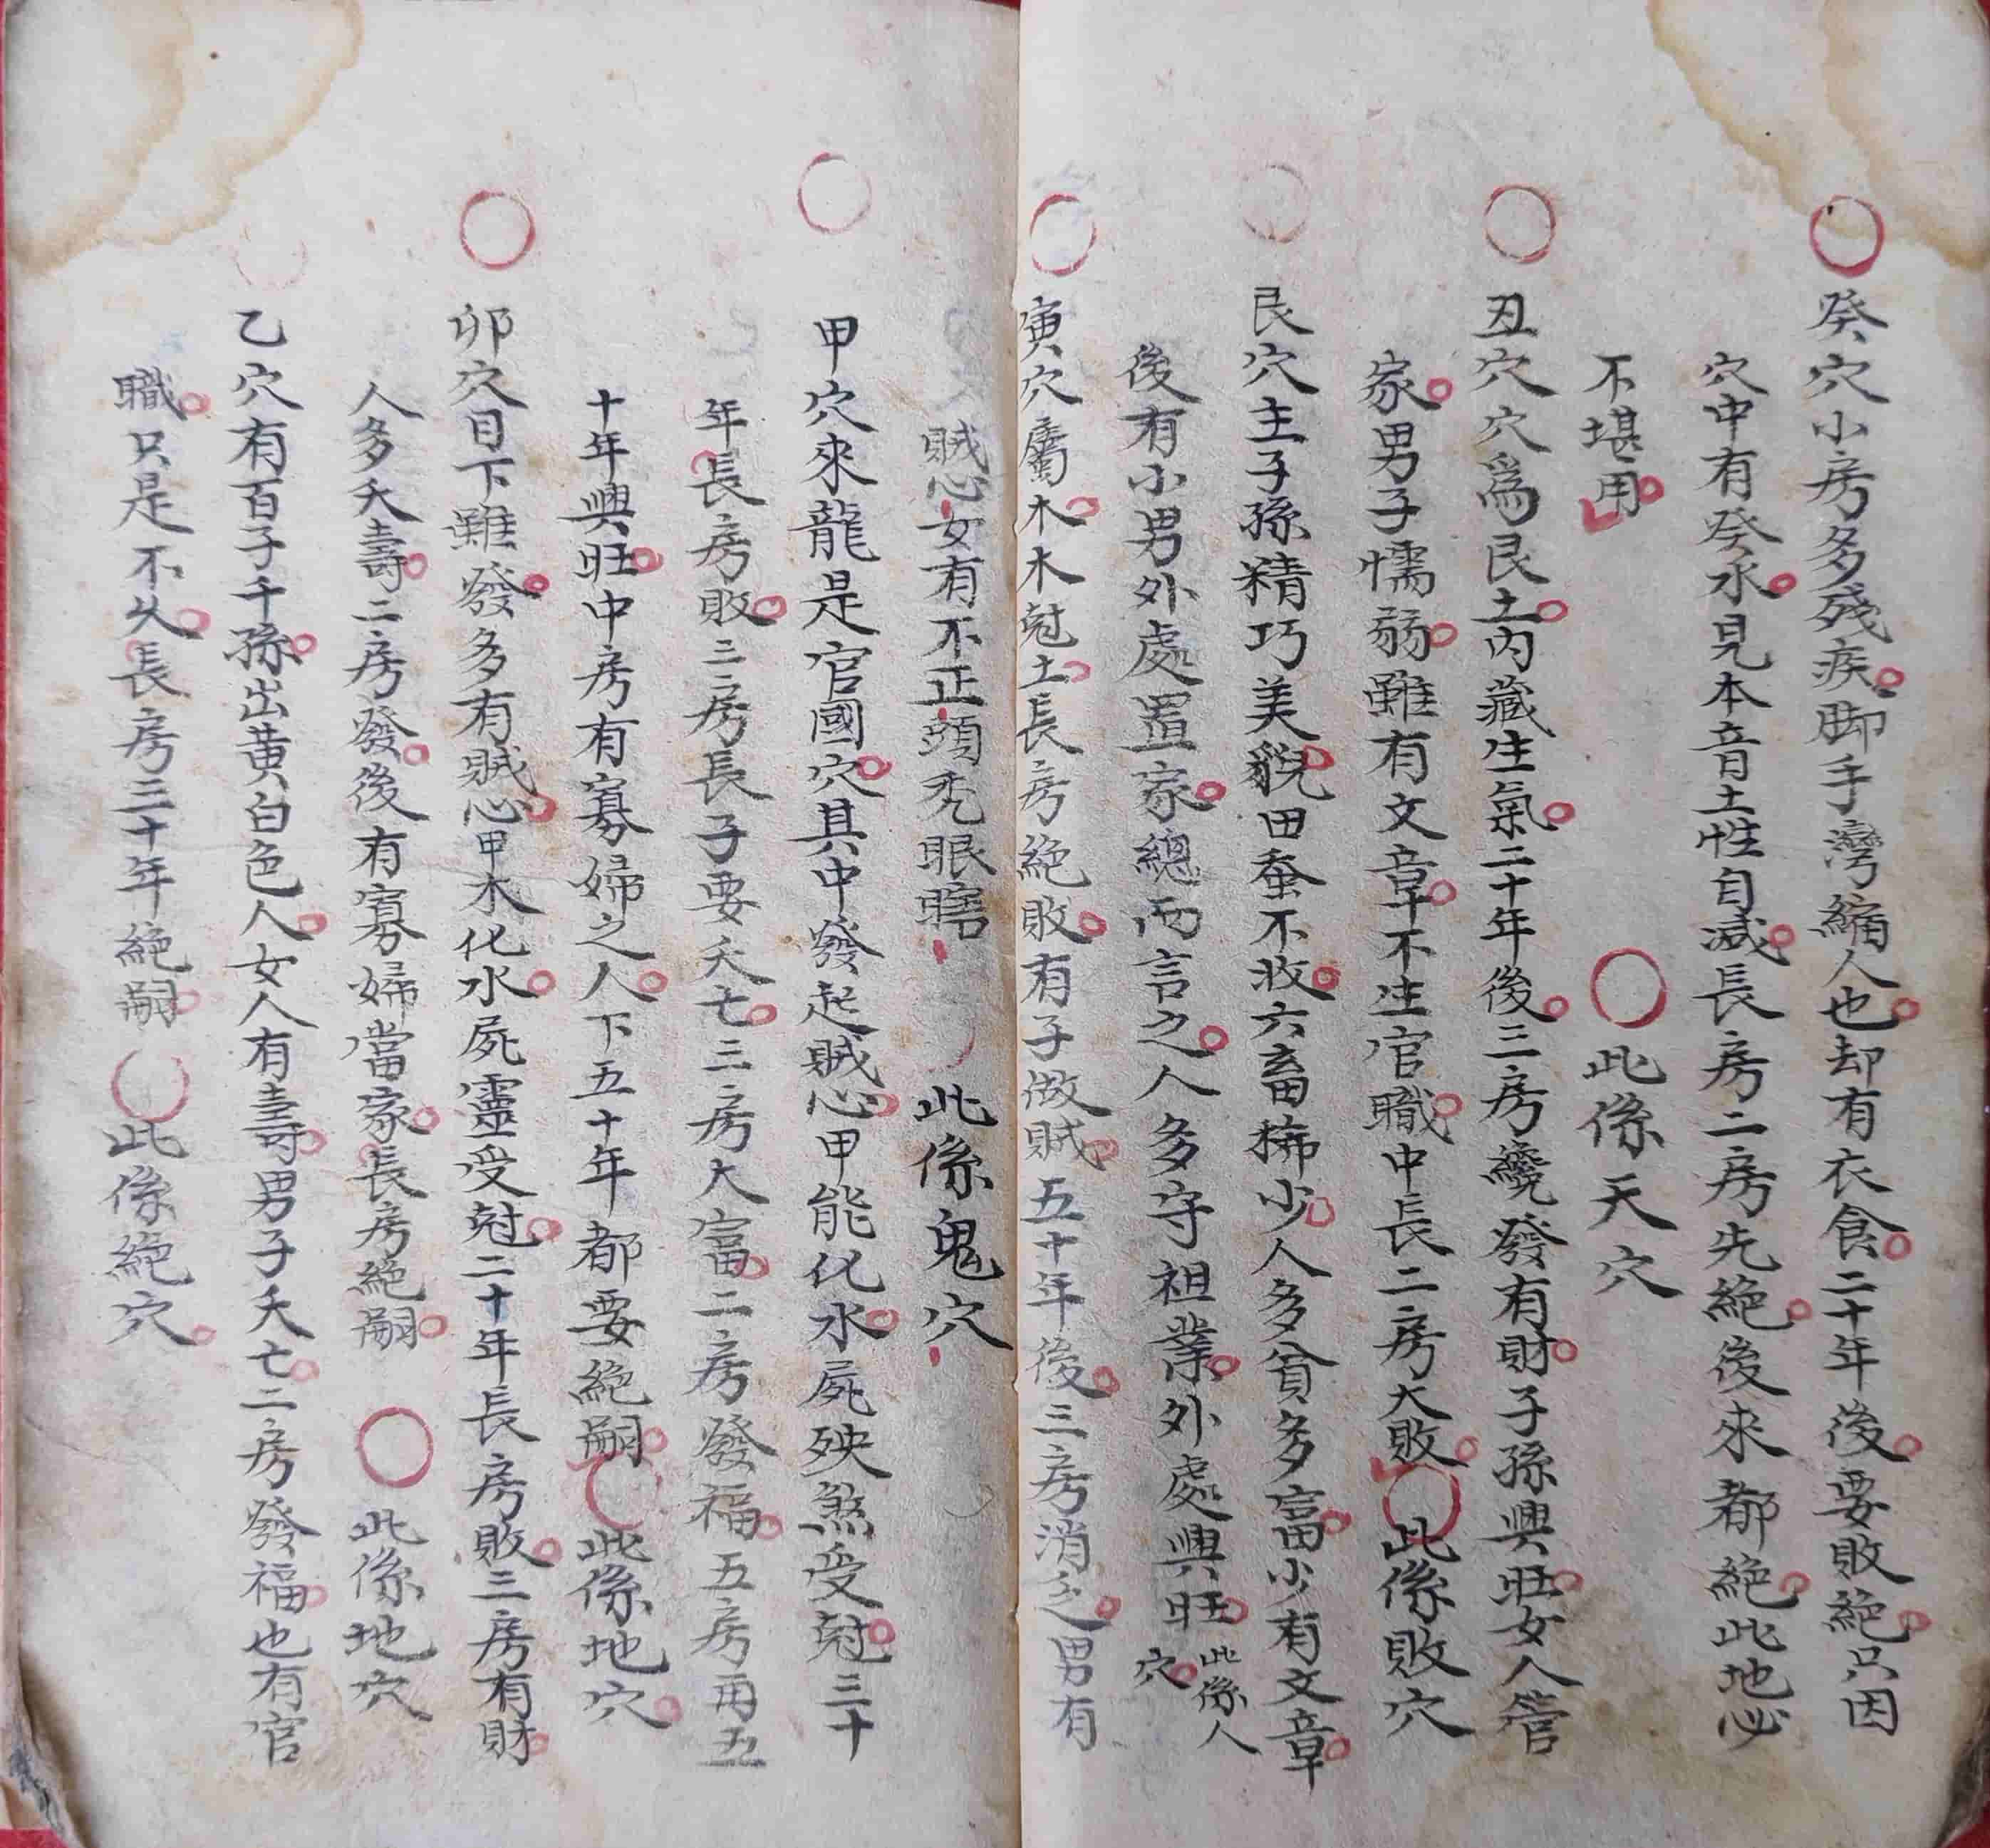 癸穴小房多殘疾脚手灣縮人也却有衣食二十年後要敗絕只因
穴中有癸水見本音土性自滅長房二房先絕後來都絕此地必
不堪用 ○ 此係天穴
丑穴穴爲艮土內藏生氣二十年後三房纔發有財子孫興旺女人管
家男子懦弱雖有文章不生官職中長二房大敗○此係敗穴
艮穴主子孫精巧美貌田蚕不收六畜稀少人多貧多富少有文章
後有小男外處置家總而言之人多守祖業外處興旺此係人穴
寅穴屬木木尅土長房絕敗有子做賊五十年後三房消乏男有
賊心女有不正頭禿眼瞎 此係鬼穴
甲穴來龍是官國穴其中發起賊心甲能化水屍殃煞受尅三十
年長房敗三房長子要夭亡三房大富二房發福五房再五
十年興旺中房有寡婦之人下五十年都要絕嗣○此係地穴
卯穴目下雖發多有賊心甲木化水屍靈受尅二十年長房敗三房有財
人多夭壽二房發後有寡婦當家長房絕嗣 ○ 此係地穴
乙穴有百子千孫出黃白色人女人有壽男子夭亡二房發福也有官
職只是不久長房三十年絕嗣○此係絕穴